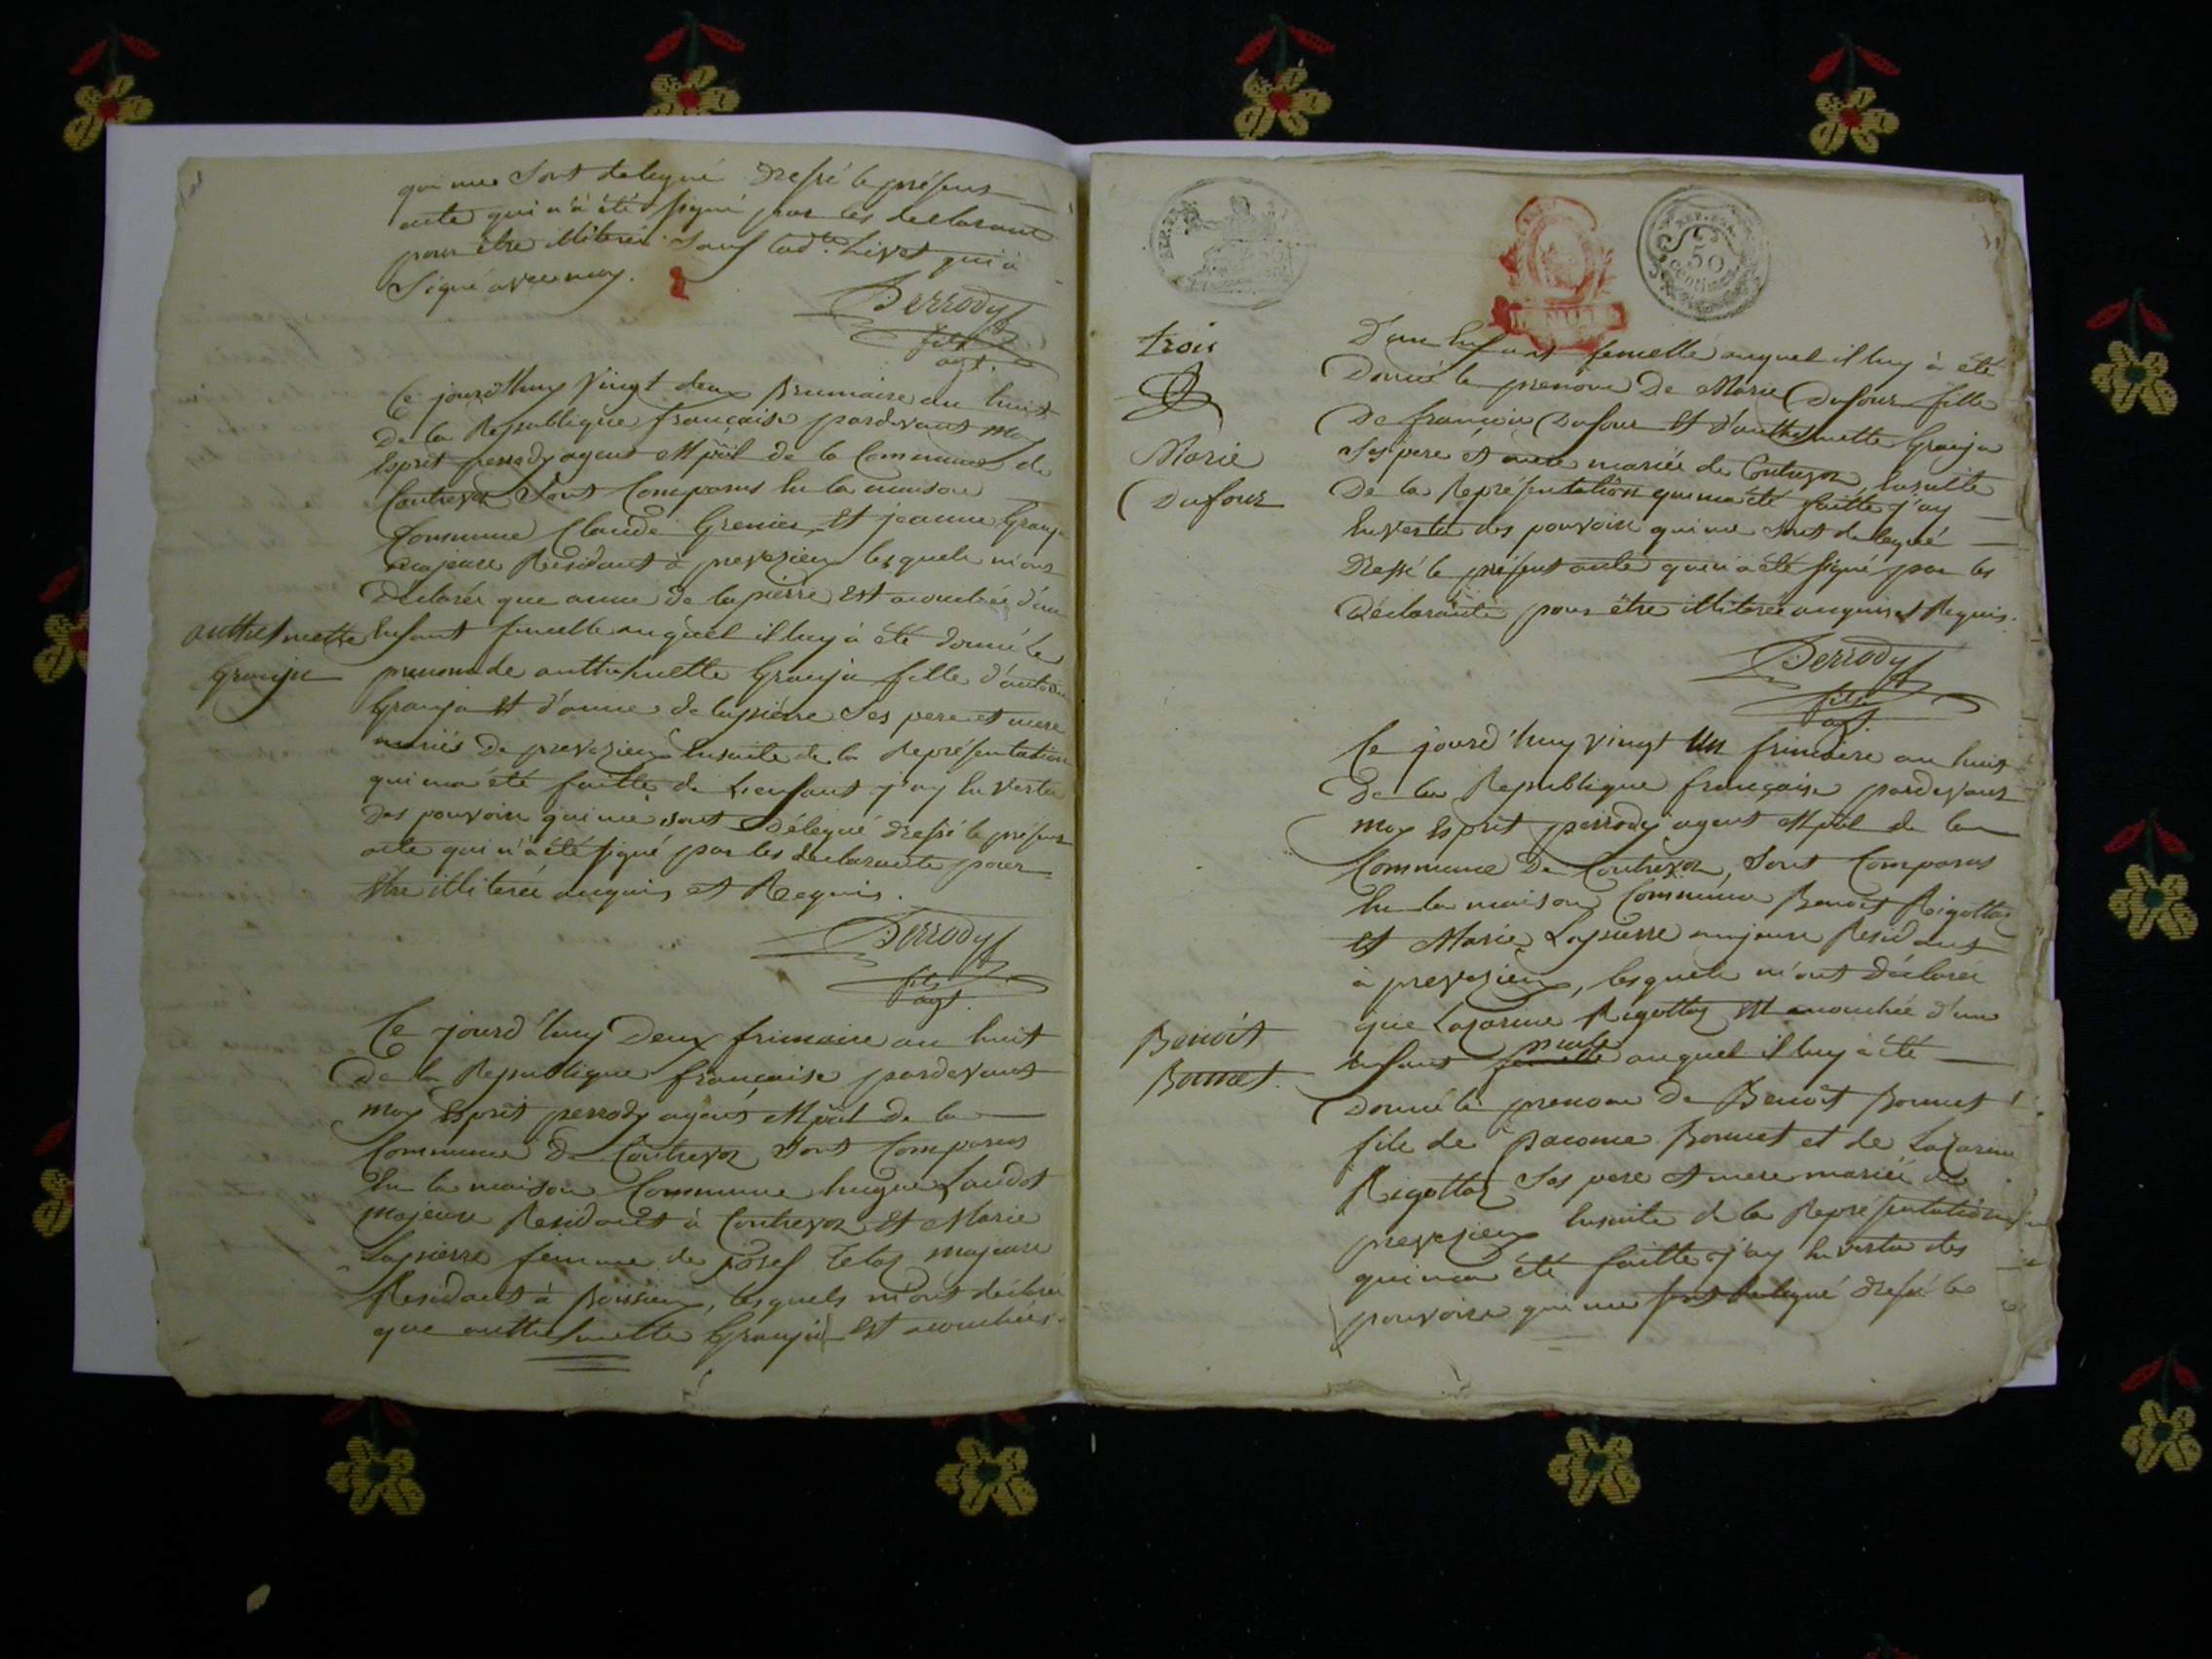 qui me sont delegué dressé le présent
acte qui n'a été signé par les declarant
pour être illiteré. Sauf lad.te Livet qui a
signé avec moy.
Perrody
fils
agt.
Ce jourd'huy vingt deux Brumaire an huit
De la Republique française pardevant moy
Esprit perrody agent Mpâl de la Commune de
Contrevoz sont Comparus En la maison
Commune Claude Grenier et jeanne Granja
majeure Residant à preveziew lesquels m'ont
Déclarés que anne de lapierre est acouchée d'un
Enfant femelle auquel il luy à été donné le
prenom de anthelmette Granja fille d'antoine
Granja et d'anne de lapierre ses pere et mere
mariés De preveziew Ensuite de la Représentation
qui ma été faitte de L'enfant j'ay En vertu
des pouvoirs qui me sont Délegué dressé le présent
acte qui n'a été signé par les declarants pour
Etre illiterée enquis et Requis.
anthelmette
Granja
Perrody
fils
agt.
Ce jourd'huy Deux frimaire an huit
De la Republique française pardevant
moy Esprit perrody agent Mpâl De la
Commune De Contrevoz sont Comparus
En la maison Commune hugue Landot
majeure Residant à Contrevoz et Marie
Lapierre femme de josef majeure
Residant à Boissieu, lesquels m'ont déclarés
que anthelmette Granja est acouchée
trois
D'un Enfant femelle auquel il luy à été
Donné le prenom De Marie Dufour fille
De francois Dufour et d'anthelmette Granja
Ses pere et mere mariés de Contrevoz, Ensuite
De la Représentation qui ma été faitte j'ay
En vertu des pouvoirs qui me sont delegué
Dressé le présent acte qui n'a été signé par les
Déclarants pour être illiterée enquis et Requis.
Marie
Dufour
REP. FRA.
50
centimes
Perrody
fils
agt.
Ce jourd'huy vingt un frimaire an huit
De la Republique française pardevant
moy Esprit perrody agent Mpâl de la
Commune De Contrevoz, sont Comparus
En la maison Commune Benoit Rigottaz
et Marie Lapierre majeure Residant
à preveziew, lesquels m'ont déclarés
que Lazarine Rigottaz est acouchée d'un
Enfant femelle male auquel il luy à été
Donné le prenom De Benoit Bonnet
fils de Bonnet et de Lazarine
Rigottaz Ses pere et mere mariés de
preveziew Ensuite de la Représentation
qui ma été faitte j'ay En vertu des
pouvoirs qui me sont delegué dressé le
Benoit
Bonnet.